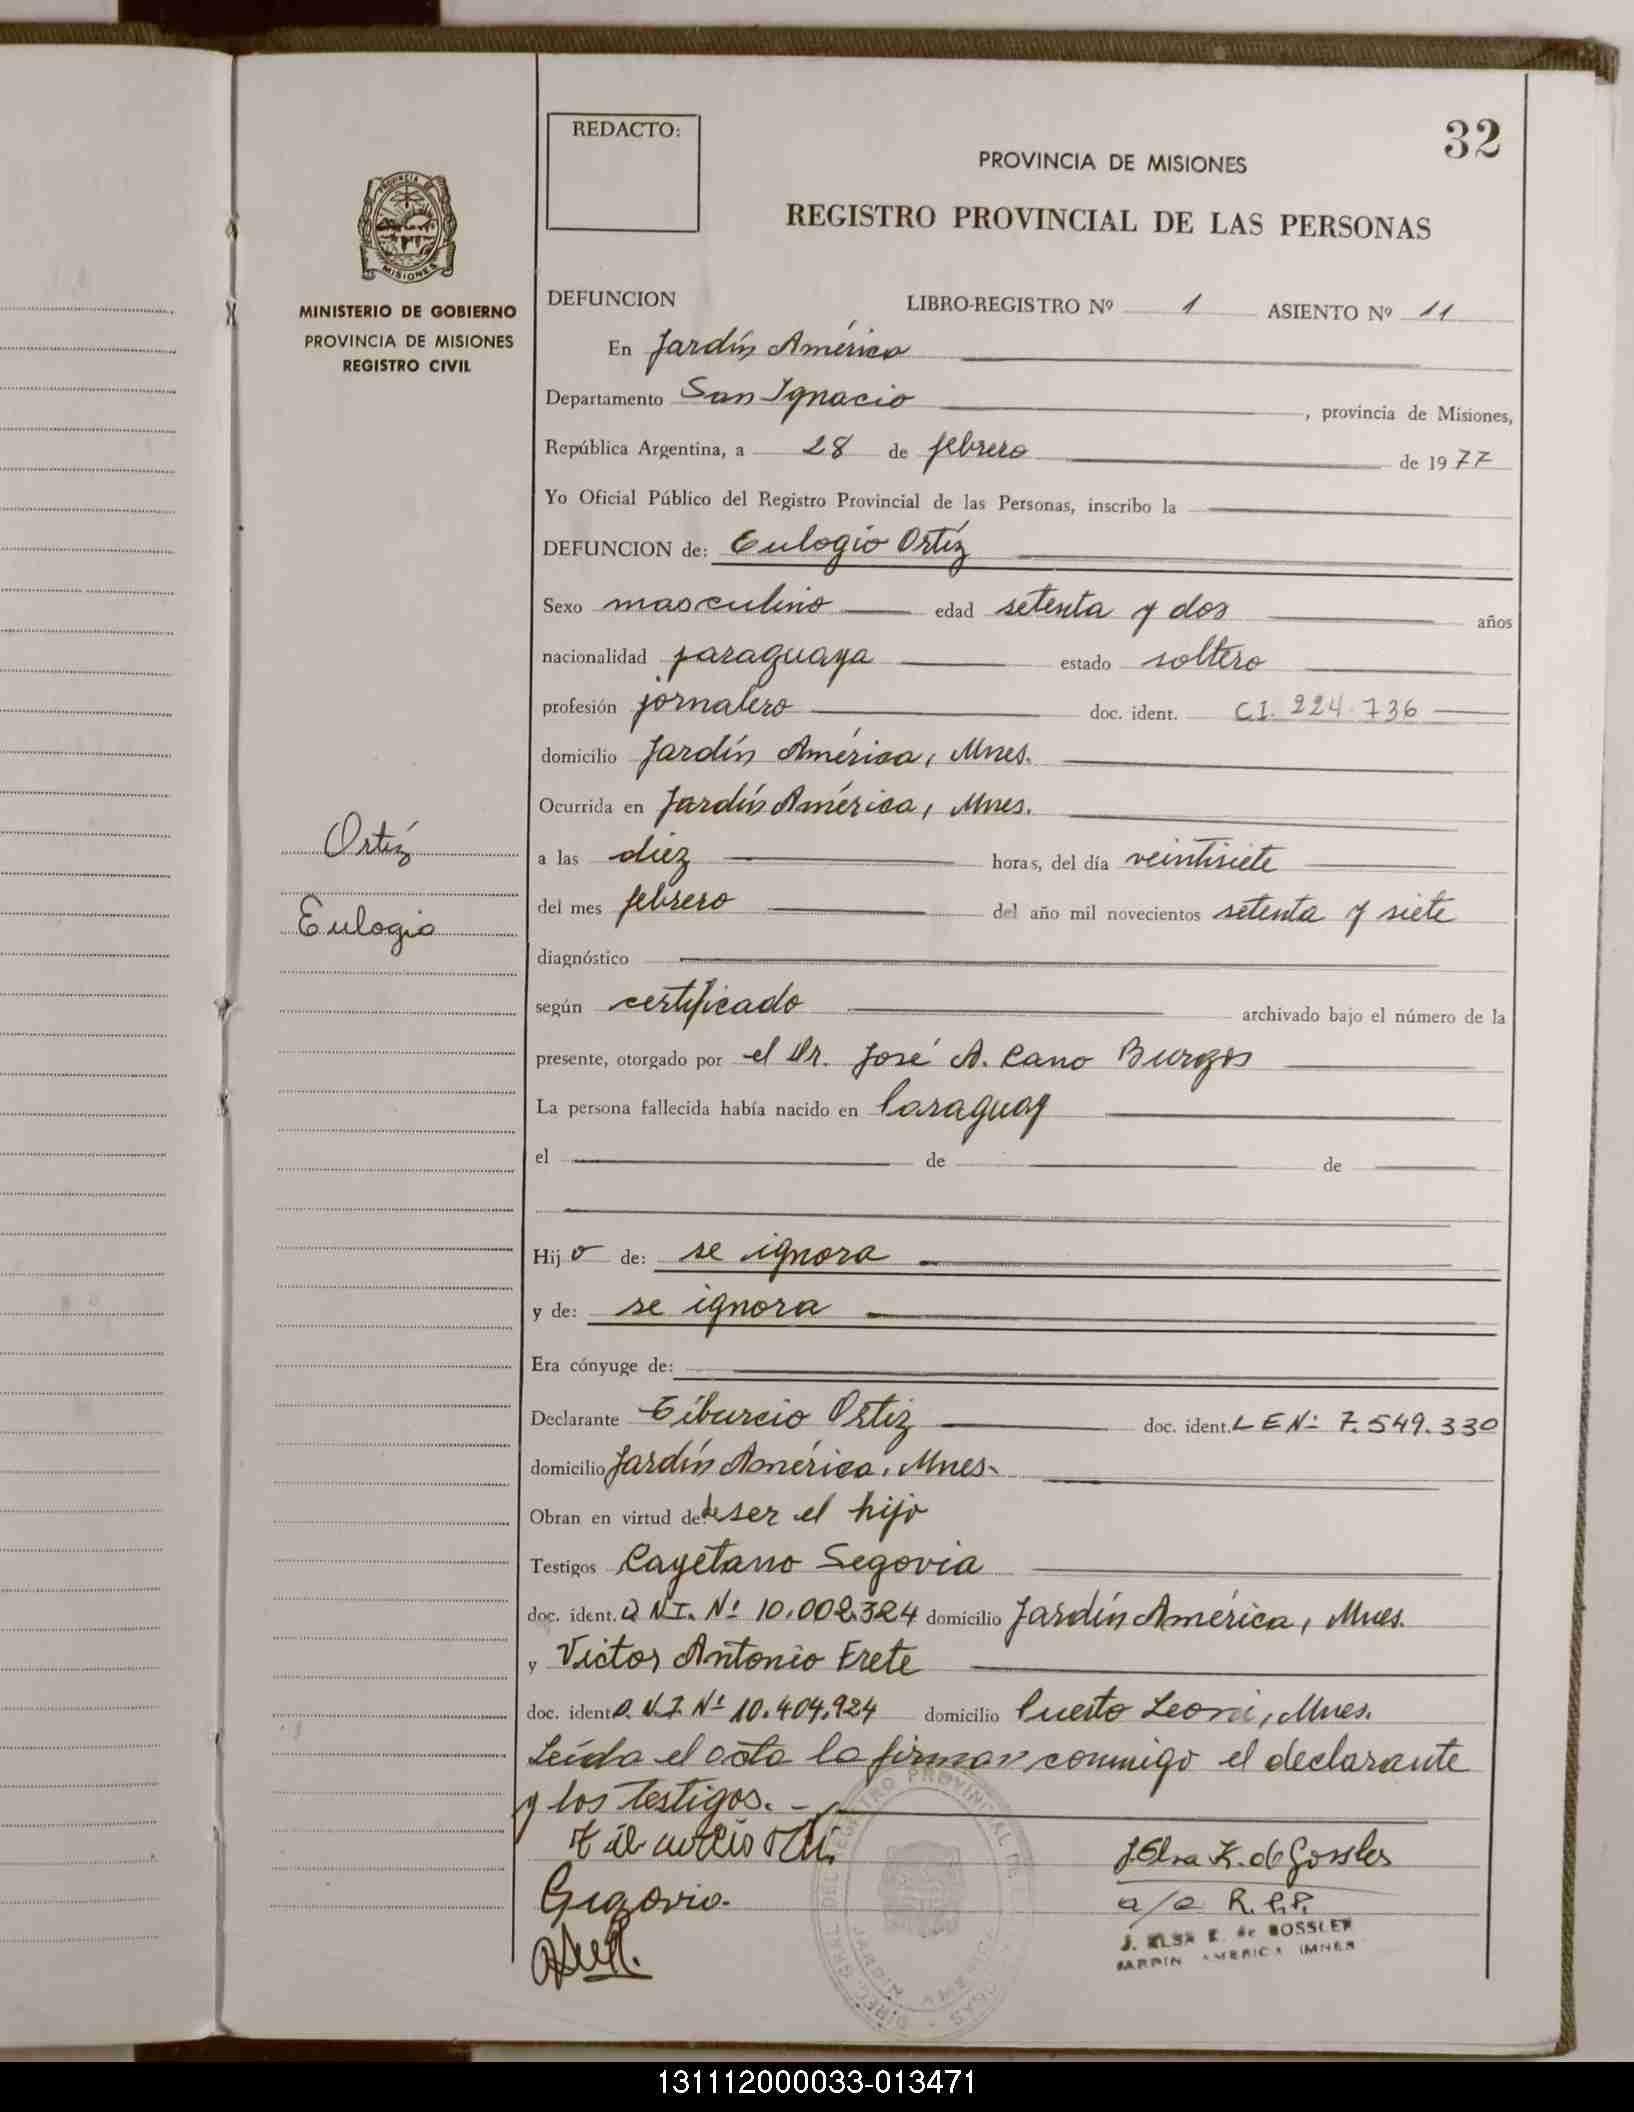 32
REDACTO:
PROVINCIA DE MISIONES
REGISTRO PROVINCIAL DE LAS PERSONAS
PROVINCIA DE
MISIONES
MINISTERIO DE GOBIERNO
PROVINCIA DE MISIONES
REGISTRO CIVIL
Ortíz
Eulogio
DEFUNCION LIBRO-REGISTRO Nº 1 ASIENTO Nº 11
En Jardín América
Departamento San Ignacio , provincia de Misiones,
República Argentina, a 28 de febrero de 1977
Yo Oficial Público del Registro Provincial de las Personas, inscribo la
DEFUNCION de: Eulogio Ortíz
Sexo masculino edad setenta y dos años
nacionalidad paraguaya estado soltero
profesión jornalero doc. ident. C.I. 224.736
domicilio Jardín América, Mnes.
Ocurrida en Jardín América, Mnes.
a las diez horas, del día veintisiete
del mes febrero del año mil novecientos setenta y siete
diagnóstico
según certificado archivado bajo el número de la
presente, otorgado por el Dr. José A. Cano Burgos
La persona fallecida había nacido en Paraguay
el de de
Hijo de: se ignora
y de: se ignora
Era cónyuge de:
Declarante Tiburcio Ortiz doc. ident. L E Nº 7.549.330
domicilio Jardín América, Mnes.
Obran en virtud de: de ser el hijo
Testigos Cayetano Segovia
doc. ident. D N.I. Nº 10.002.324 domicilio Jardín América, Mnes.
y Victor Antonio Erete
doc. ident. D.N.I. Nº 10.404.924 domicilio Puerto Leoni, Mnes.
Leída el acta la firman conmigo el declarante
y los testigos. -
J. Elsa K. de Gossler
a/c R.P.P.
J. ELSA K. de GOSSLER
JARDIN AMERICA (MNES
REGISTRO PROVINCIAL DE
JARDIN AMERICA
131112000033-013471